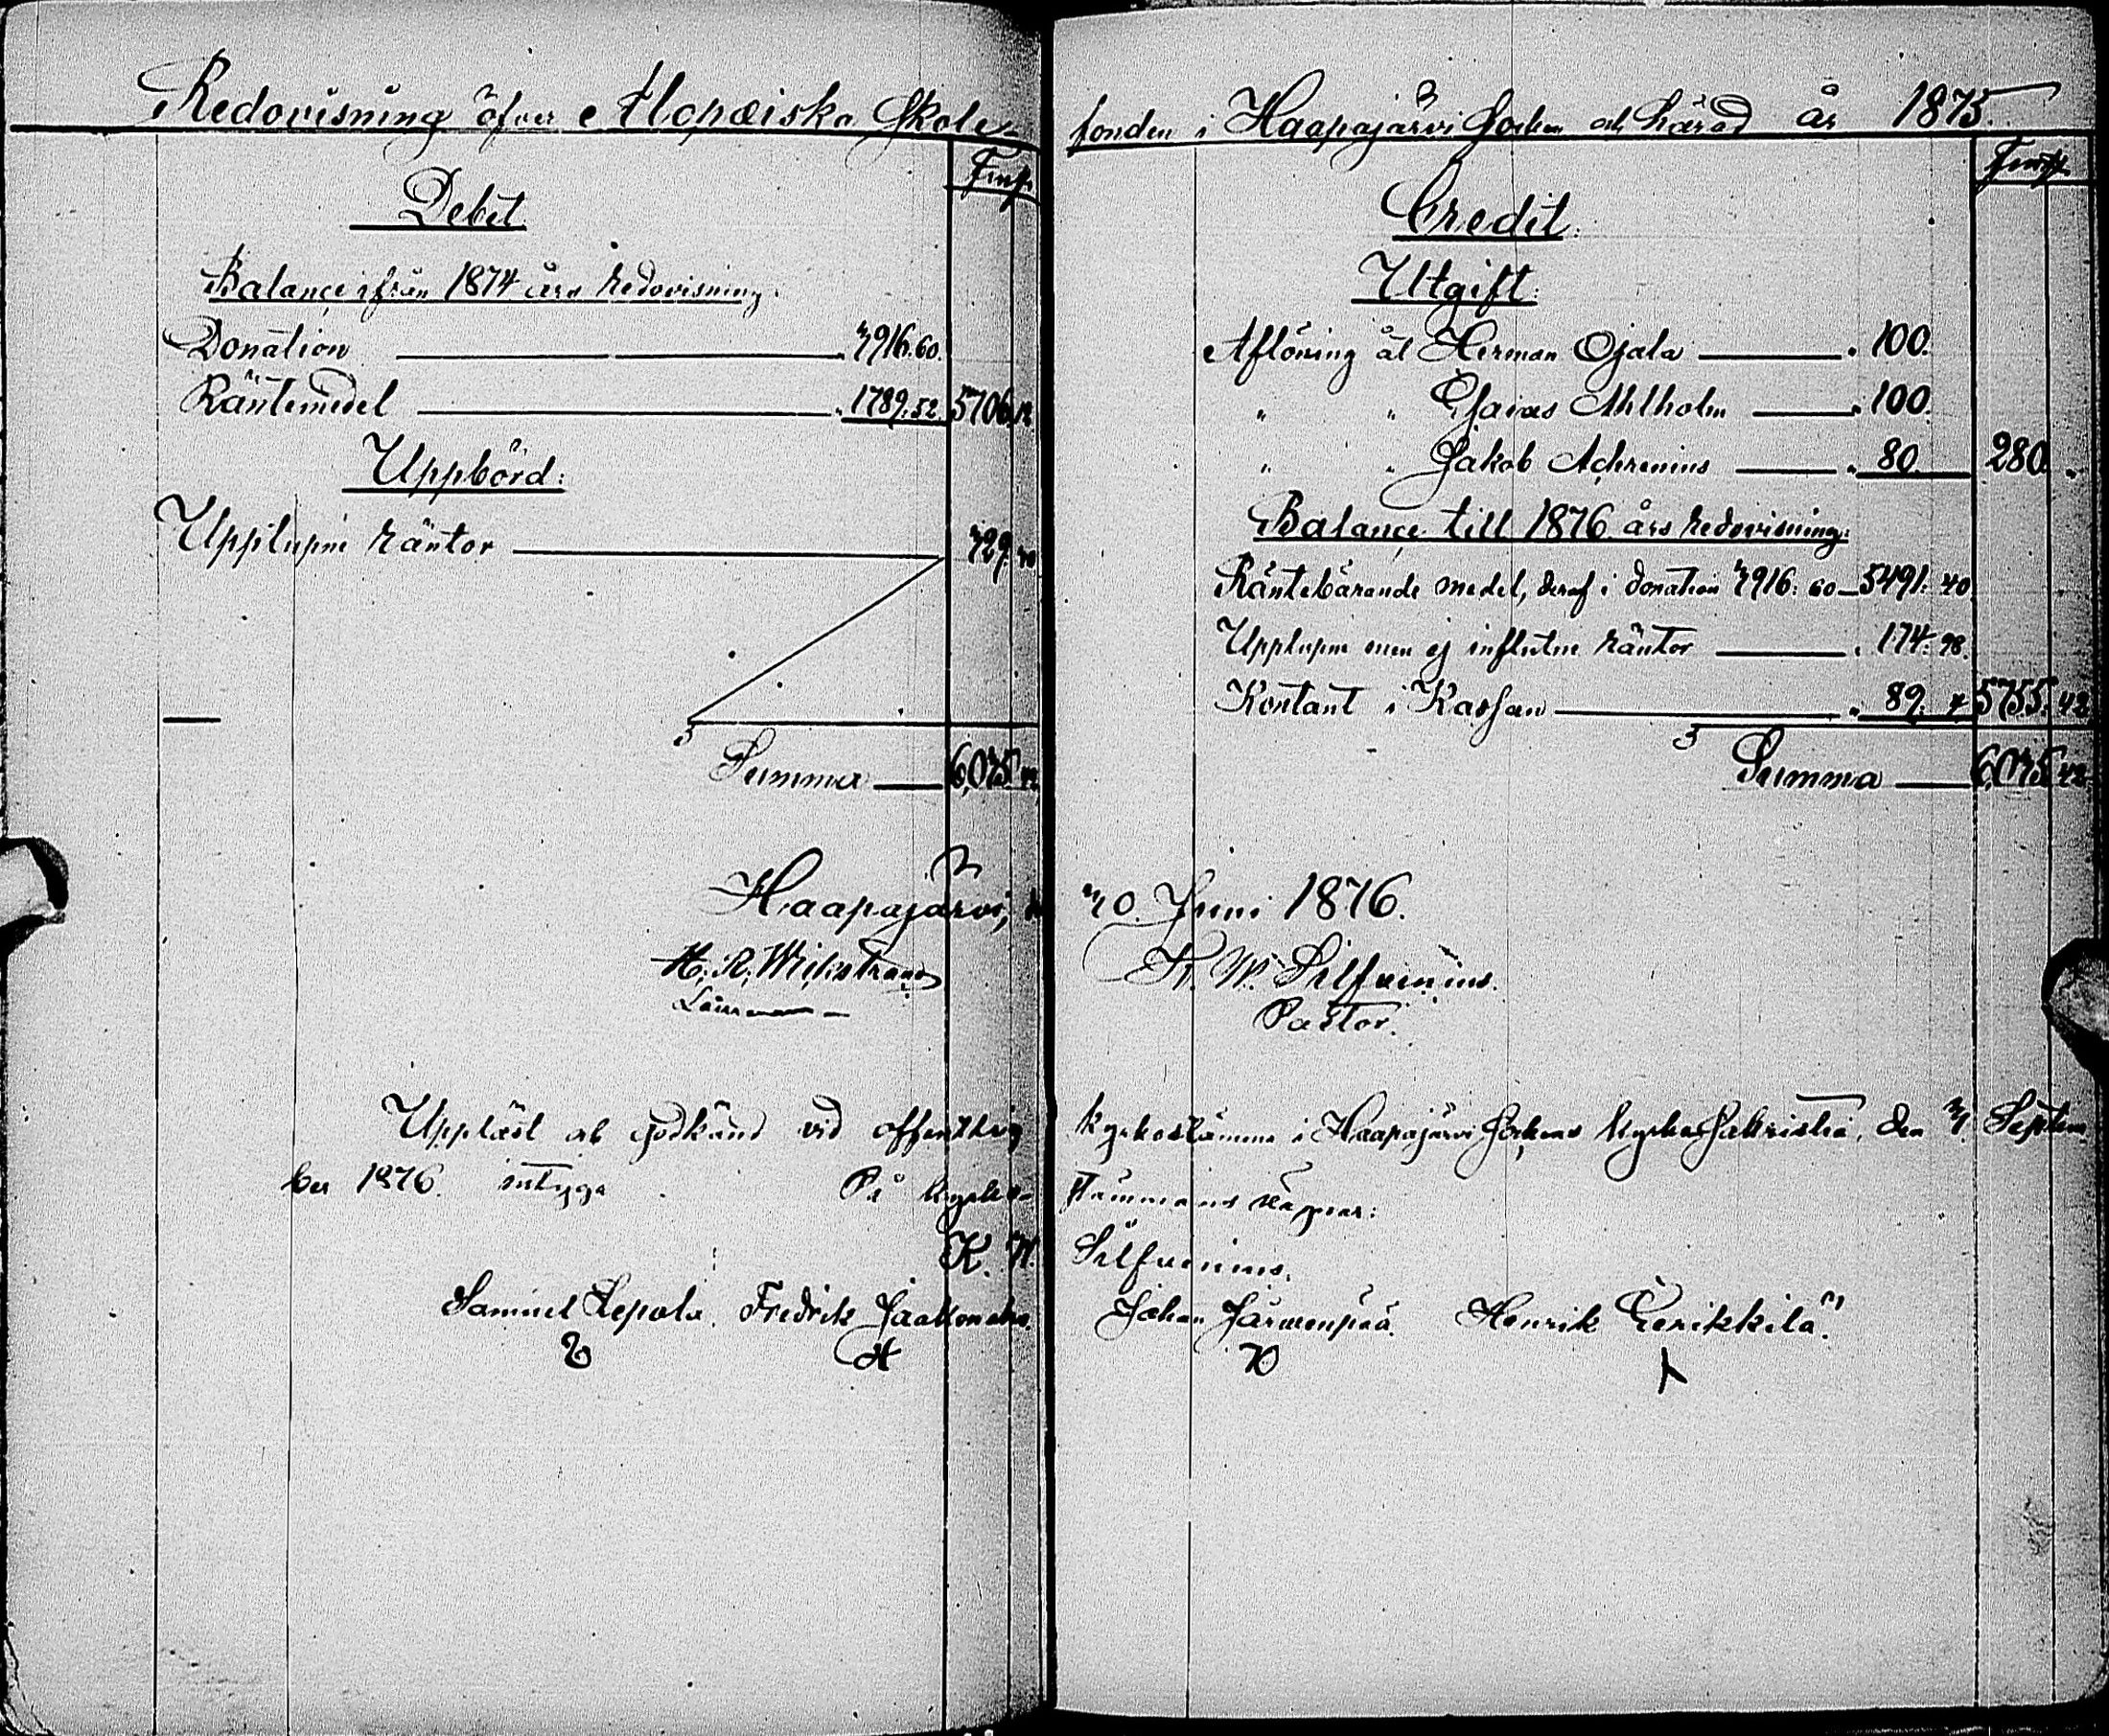 Redovisning öfver Alopæiska Skole-
Fmk.
Debet.
Balance ifrån 1874 års Redovisning:
Donation 3916.60.
Räntemedel 1789.52. 5706.12.
Uppbörd:
Upplupne räntor 329.30
Summa 6,035.42
Haapajärvi, d.
H. R. Wickstrand
Länsman
Uppläst och godkänd vid offentlig
ber 1876. intyga På kyrko-
K. W.
Samuel Lepola. Fredrik Jaakonaho.
fonden i Haapajärvi Socken och härad år 1875.
Fmk
Credit.
Utgift:
Aflöning åt Herman Ojala " 100.
" " Esaias Ahlholm " 100.
" " Jakob Achrenius " 80. 280. "
Balance till 1876 års Redovisning:
Räntebärande medel, deraf i donation 3916: 60 5491: 40
Upplupne men ej influtne räntor " 174: 98.
Kontant i Kassan " 89: 4 5755: 42
Summa 6,035 42
30. Juni 1876.
K. W. Silfvenius.
Pastor.
kyrkostämma i Haapajärvi Sockens kyrkas Sakristia, den 3. Septem
stämmans vägnar:
Silfvenius.
Johan Järvenpää. Henrik Eerikkilä.